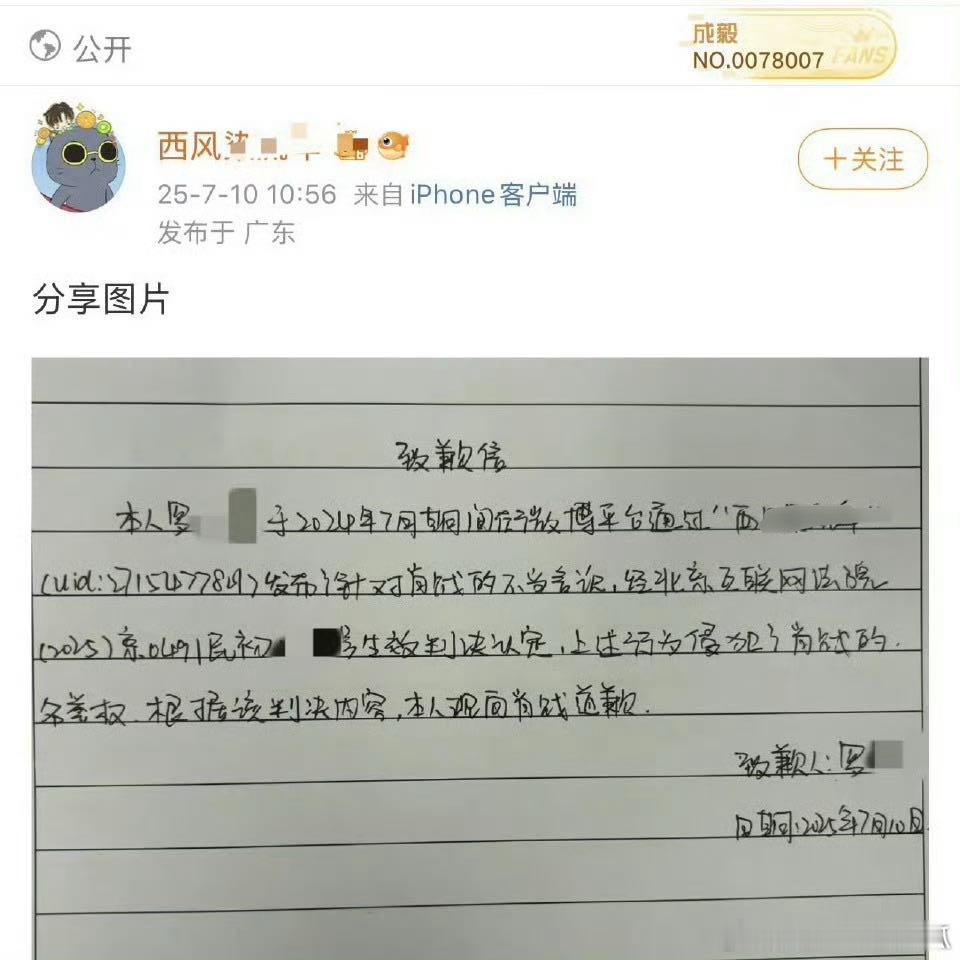 公开
成毅
NO.0078007
FANS
西风
+关注
25-7-10 10:56 来自 iPhone客户端
发布于 广东
分享图片
致歉信
本人罗 于2024年7月期间在微博平台通过“西
(uid: 2715477849)发布了针对肖战的不当言论,经北京互联网法院
(2025)京0491民初 号生效判决认定,上述行为侵犯了肖战的
名誉权.根据该判决内容,本人现向肖战道歉.
致歉人:罗
日期:2025年7月10日.